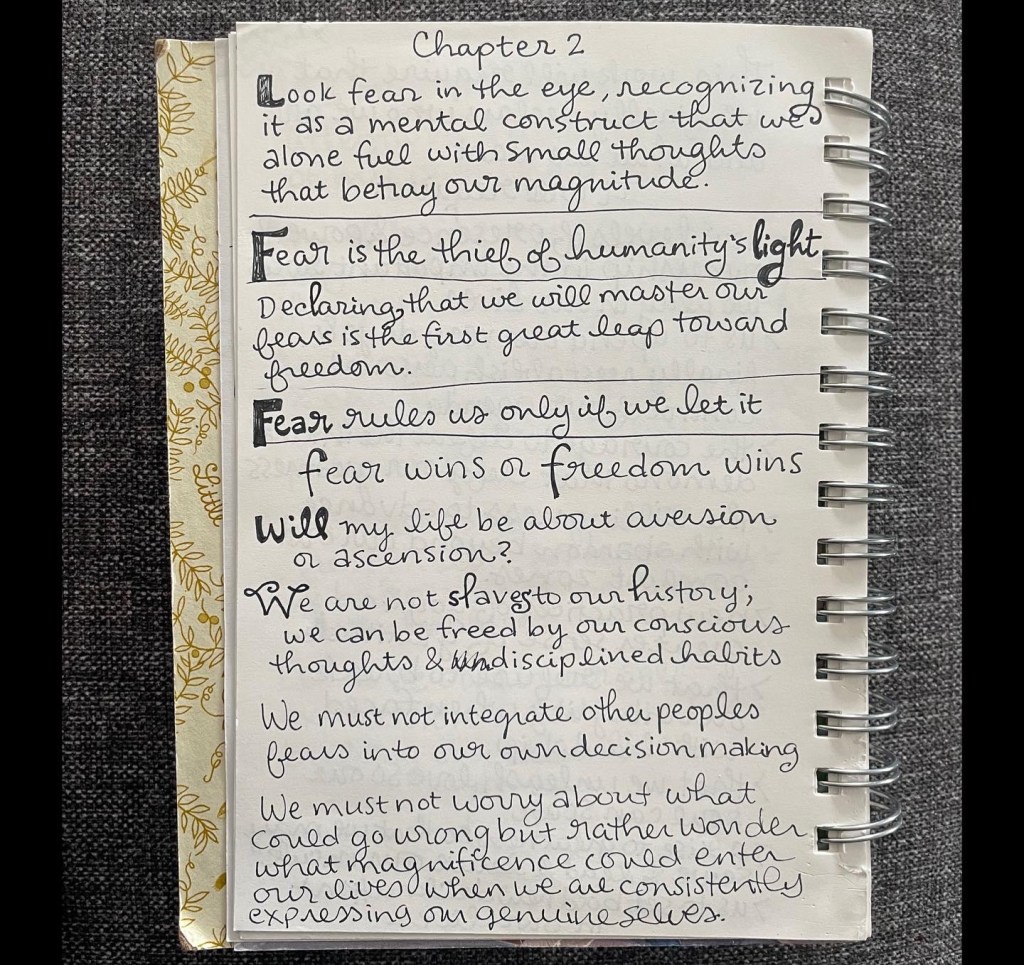 Chapter 2
Look fear in the eye, recognizing
it as a mental construct that we
alone fuel with small thoughts
that betray our magnitude.
Fear is the thief of humanity's light
Declaring, that we will master our
fears is the first great leap toward
freedom.
Fear rules us only if we let it
fear wins or freedom wins
Will my life be about aversion
or ascension?
We are not slaves to our history;
we can be freed by our conscious
thoughts & disciplined habits
We must not integrate other peoples
fears into our own decision making
We must not worry about what
could go wrong but rather wonder
what magnificence could enter
our lives when we are consistently
expressing our genuine selves.
Little